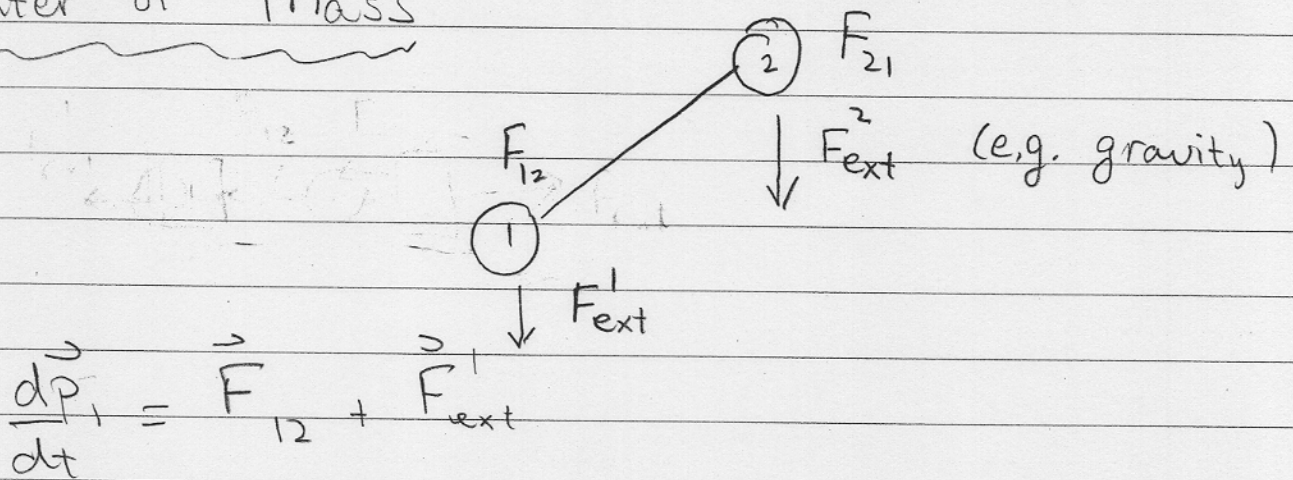 Mass
2 F₂₁
F²ext (e.g. gravity)
F₁₂
1
F¹ext
dp⃗₁/dt = F⃗₁₂ + F⃗¹ext